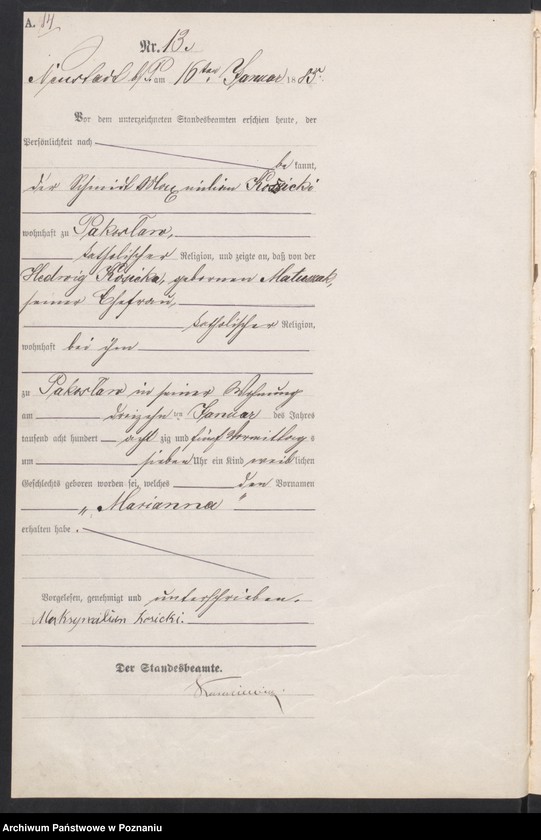 A. 14
Nr. 13.
Neustadt b/P am 16ten Januar 1885.
Vor dem unterzeichneten Standesbeamten erschien heute, der
Persönlichkeit nach
be kannt,
der Schmidt Maximilian Kosicki
wohnhaft zu Pakoslaw,
katholischer Religion, und zeigte an, daß von der
Hedwig Kosicka, gebornen Matuszak,
seiner Ehefrau,
katholischer Religion,
wohnhaft bei ihm
zu Pakoslaw in seiner Wohnung
am dreizehn ten Januar des Jahres
tausend acht hundert acht zig und fünf Vormittag s
um sieben Uhr ein Kind weib lichen
Geschlechts geboren worden sei, welches den Vornamen
„Marianna"
erhalten habe.
Vorgelesen, genehmigt und unterschrieben.
Maksymilian Kosicki.
Der Standesbeamte.
Archiwum Państwowe w Poznaniu